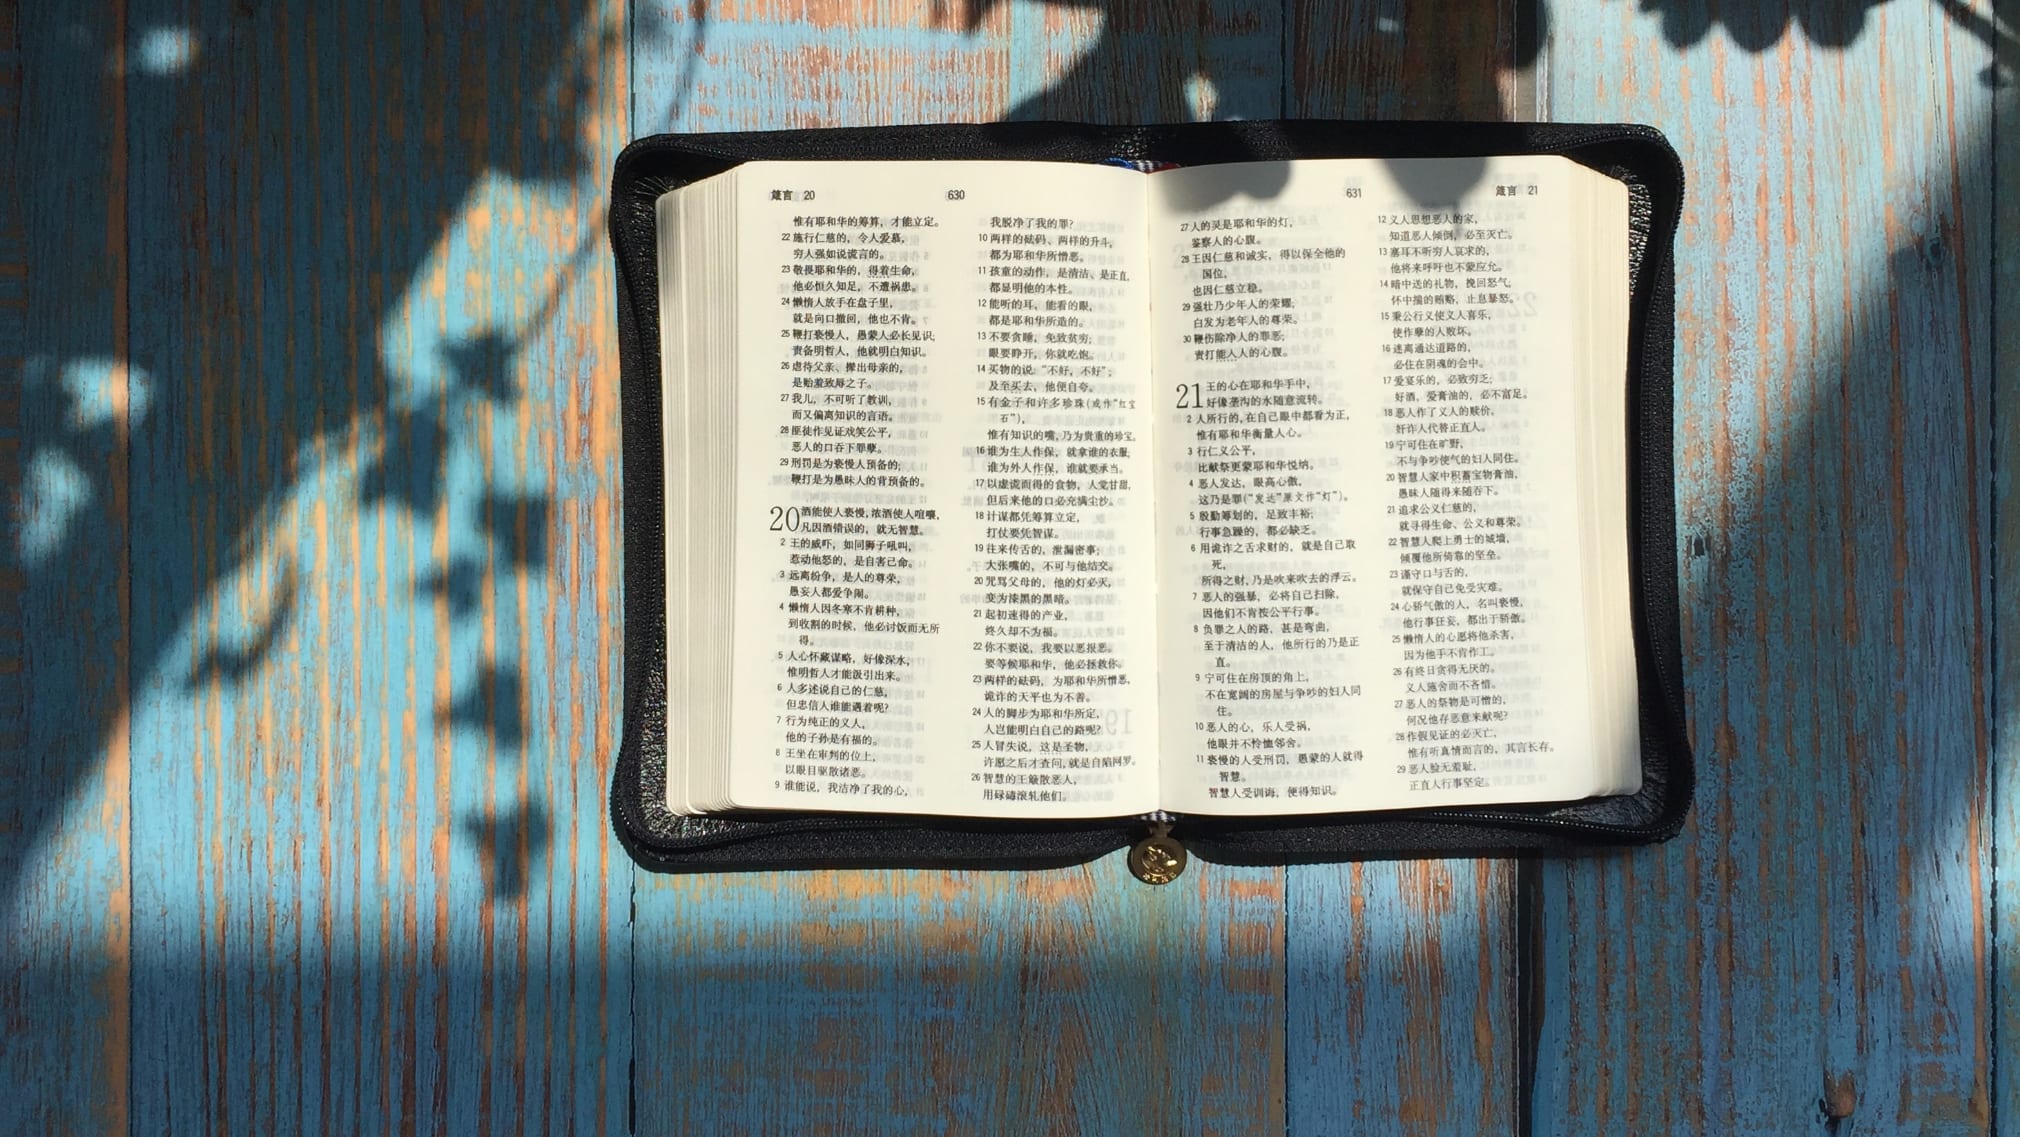 箴言 20
630
惟有耶和华的筹算，才能立定。
22 施行仁慈的，令人爱慕，
穷人强如说谎言的。
23 敬畏耶和华的，得着生命，
他必恒久知足，不遭祸患。
24 懒惰人放手在盘子里，
就是向口撤回，他也不肯。
25 鞭打亵慢人，愚蒙人必长见识；
责备明哲人，他就明白知识。
26 虐待父亲、撵出母亲的，
是贻羞致辱之子。
27 我儿，不可听了教训，
而又偏离知识的言语。
28 匪徒作见证戏笑公平，
恶人的口吞下罪孽。
29 刑罚是为亵慢人预备的；
鞭打是为愚昧人的背预备的。
20 酒能使人亵慢，浓酒使人喧嚷，
凡因酒错误的，就无智慧。
2 王的威吓，如同狮子吼叫，
惹动他怒的，是自害己命。
3 远离纷争，是人的尊荣，
愚妄人都爱争闹。
4 懒惰人因冬寒不肯耕种，
到收割的时候，他必讨饭而无所
得。
5 人心怀藏谋略，好像深水，
惟明哲人才能汲引出来。
6 人多述说自己的仁慈，
但忠信人谁能遇着呢？
7 行为纯正的义人，
他的子孙是有福的。
8 王坐在审判的位上，
以眼目驱散诸恶。
9 谁能说，我洁净了我的心，
我脱净了我的罪？
10 两样的砝码、两样的升斗，
都为耶和华所憎恶。
11 孩童的动作，是清洁、是正直，
都显明他的本性。
12 能听的耳，能看的眼，
都是耶和华所造的。
13 不要贪睡，免致贫穷；
眼要睁开，你就吃饱。
14 买物的说：“不好，不好”；
及至买去，他便自夸。
15 有金子和许多珍珠(或作“红宝
石”)，
惟有知识的嘴，乃为贵重的珍宝。
16 谁为生人作保，就拿谁的衣服；
谁为外人作保，谁就要承当。
17 以虚谎而得的食物，人觉甘甜，
但后来他的口必充满尘沙。
18 计谋都凭筹算立定，
打仗要凭智谋。
19 往来传舌的，泄漏密事；
大张嘴的，不可与他结交。
20 咒骂父母的，他的灯必灭，
变为漆黑的黑暗。
21 起初速得的产业，
终久却不为福。
22 你不要说，我要以恶报恶。
要等候耶和华，他必拯救你。
23 两样的砝码，为耶和华所憎恶，
诡诈的天平也为不善。
24 人的脚步为耶和华所定，
人岂能明白自己的路呢？
25 人冒失说，这是圣物，
许愿之后才查问，就是自陷网罗。
26 智慧的王簸散恶人，
用碌碡滚轧他们。
631
箴言 21
27 人的灵是耶和华的灯，
鉴察人的心腹。
28 王因仁慈和诚实，得以保全他的
国位，
也因仁慈立稳。
29 强壮乃少年人的荣耀；
白发为老年人的尊荣。
30 鞭伤除净人的罪恶；
责打能入人的心腹。
21 王的心在耶和华手中，
好像垄沟的水随意流转。
2 人所行的，在自己眼中都看为正，
惟有耶和华衡量人心。
3 行仁义公平，
比献祭更蒙耶和华悦纳。
4 恶人发达，眼高心傲，
这乃是罪(“发达”原文作“灯”)。
5 殷勤筹划的，足致丰裕；
行事急躁的，都必缺乏。
6 用诡诈之舌求财的，就是自己取
死，
所得之财，乃是吹来吹去的浮云。
7 恶人的强暴，必将自己扫除，
因他们不肯按公平行事。
8 负罪之人的路，甚是弯曲，
至于清洁的人，他所行的乃是正
直。
9 宁可住在房顶的角上，
不在宽阔的房屋与争吵的妇人同
住。
10 恶人的心，乐人受祸，
他眼并不怜恤邻舍。
11 亵慢的人受刑罚，愚蒙的人就得
智慧。
智慧人受训诲，便得知识。
12 义人思想恶人的家，
知道恶人倾倒，必至灭亡。
13 塞耳不听穷人哀求的，
他将来呼吁也不蒙应允。
14 暗中送的礼物，挽回怒气，
怀中搋的贿赂，止息暴怒。
15 秉公行义使义人喜乐，
使作孽的人败坏。
16 迷离通达道路的，
必住在阴魂的会中。
17 爱宴乐的，必致穷乏；
好酒，爱膏油的，必不富足。
18 恶人作了义人的赎价，
奸诈人代替正直人。
19 宁可住在旷野，
不与争吵使气的妇人同住。
20 智慧人家中积蓄宝物膏油，
愚昧人随得来随吞下。
21 追求公义仁慈的，
就寻得生命、公义和尊荣。
22 智慧人爬上勇士的城墙，
倾覆他所倚靠的坚垒。
23 谨守口与舌的，
就保守自己免受灾难。
24 心骄气傲的人，名叫亵慢，
他行事狂妄，都出于骄傲。
25 懒惰人的心愿将他杀害，
因为他手不肯作工。
26 有终日贪得无厌的。
义人施舍而不吝惜。
27 恶人的祭物是可憎的，
何况他存恶意来献呢？
28 作假见证的必灭亡，
惟有听真情而言的，其言长存。
29 恶人脸无羞耻，
正直人行事坚定。